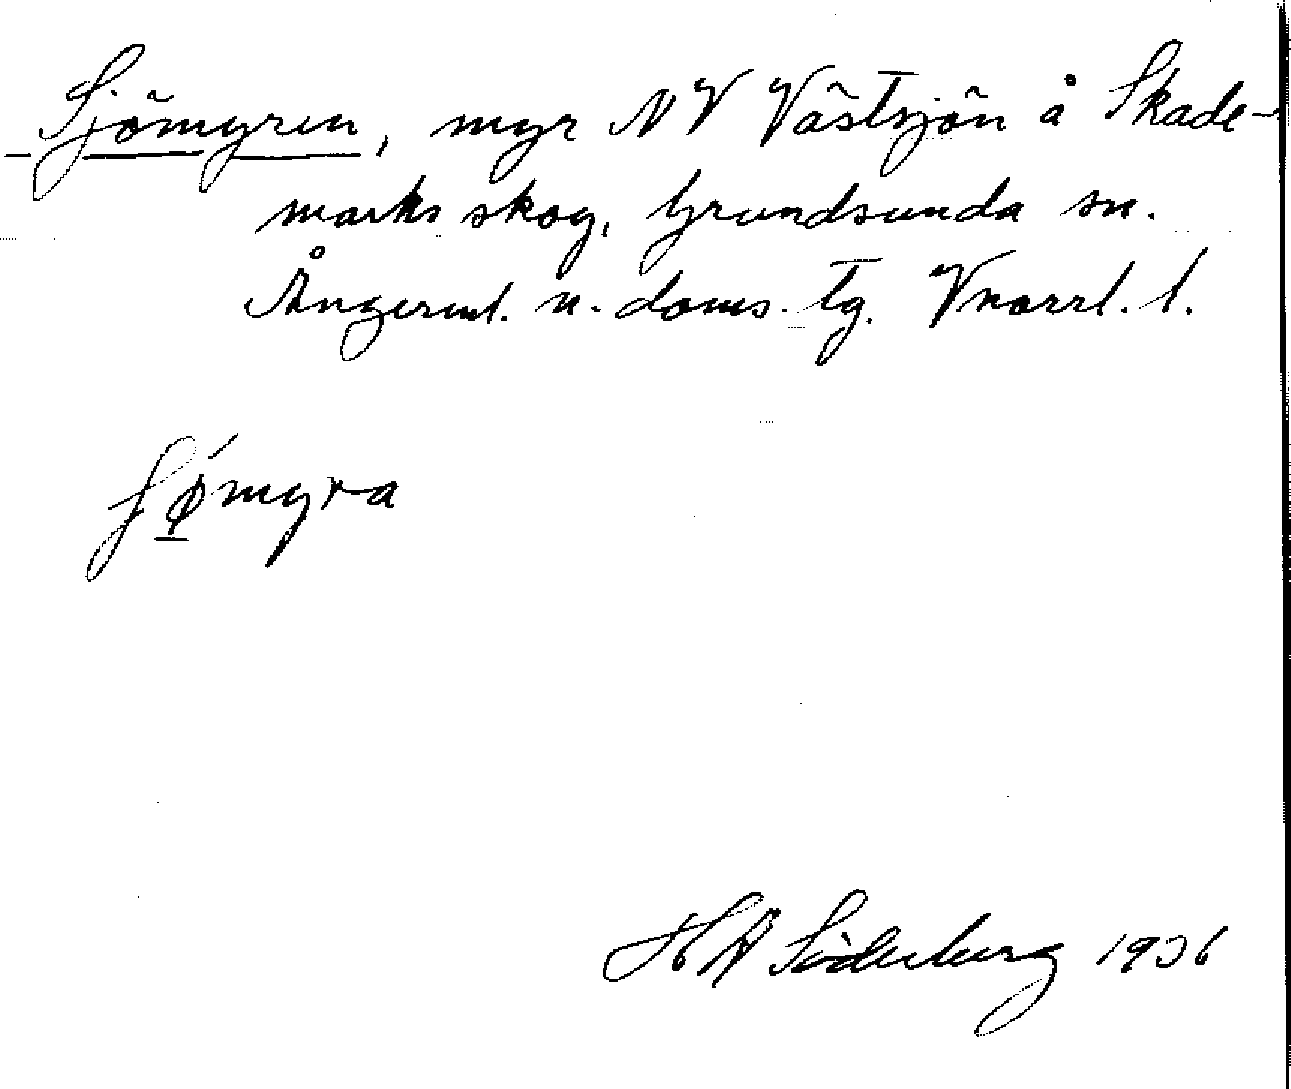 Sjömyren, myr NV Västsjön å Skade-
marks skog, Grundsunda sn.
Ångerml. n. doms. tg. Vnorrl. l.
ʃǿ̱myra
H Å Söderberg 1936